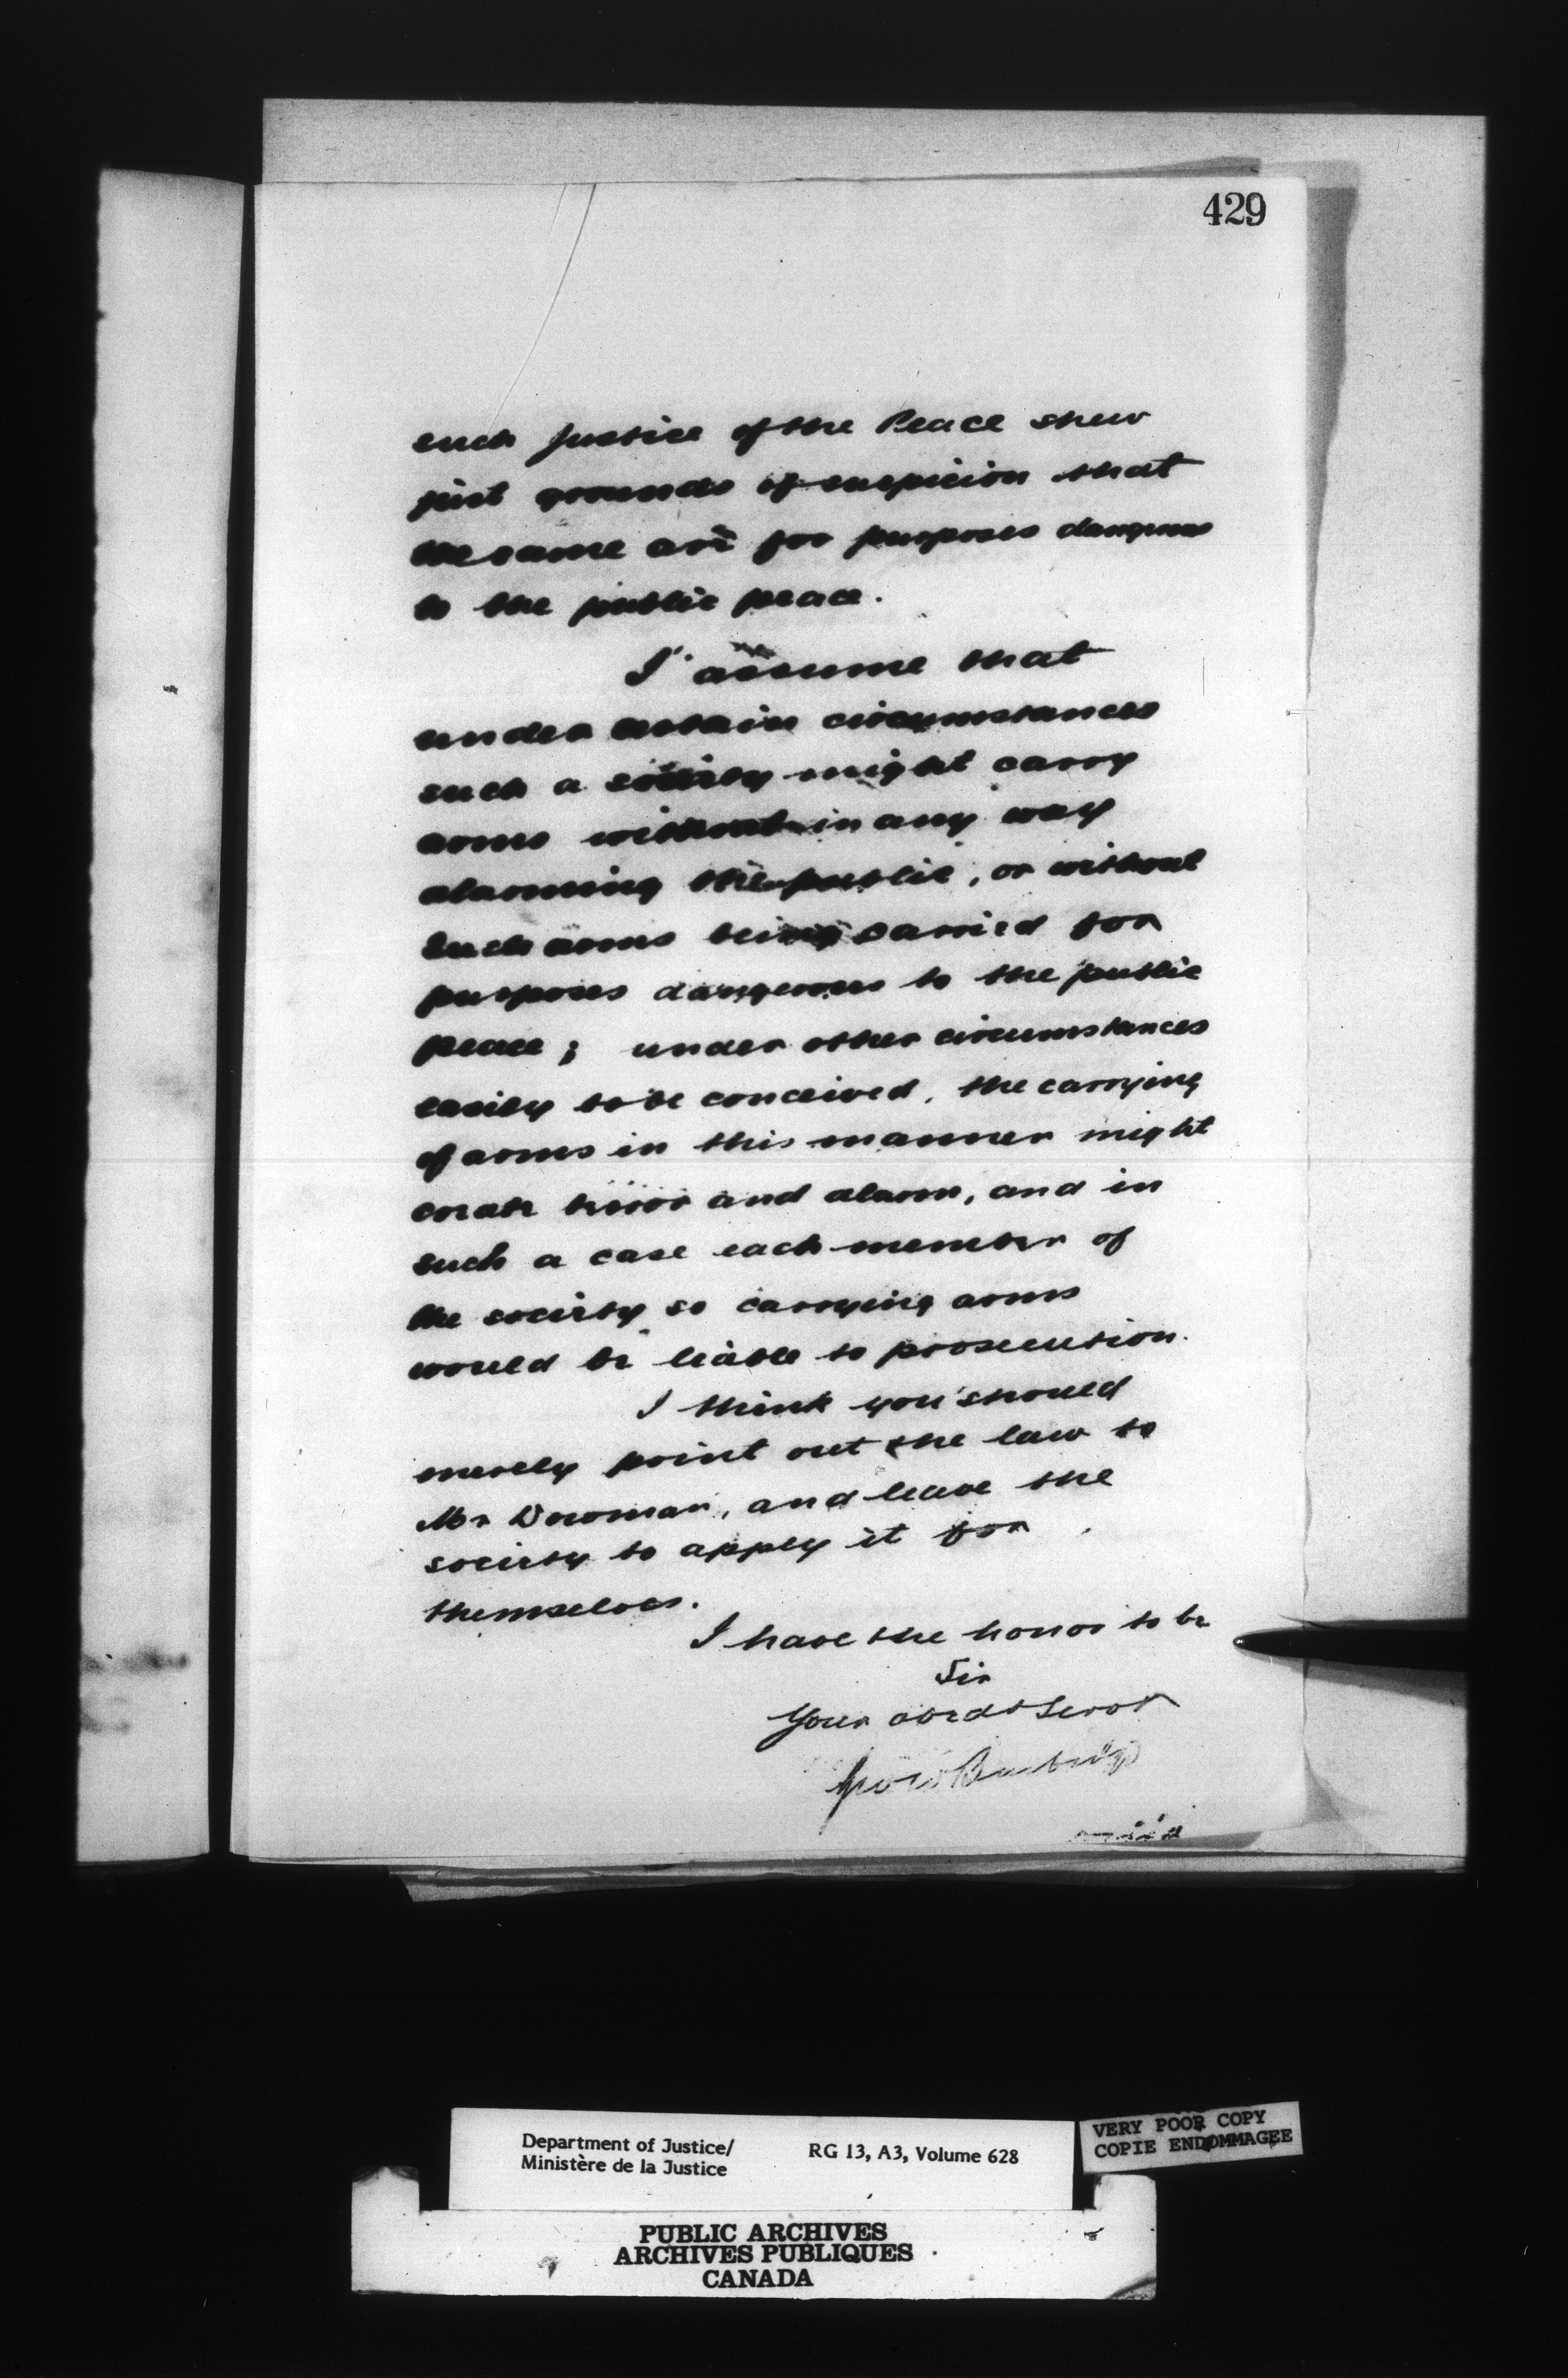 429
such Justice of the Peace shew
just grounds of suspicion that
the same are for purposes dangerous
to the public peace.
I assume that
under certain circumstances
such a society might carry
arms without in any way
alarming the public, or without
such arms being carried for
purposes dangerous to the public
peace; under other circumstances
easily to be conceived, the carrying
of arms in this manner might
create terror and alarm, and in
such a case each member of
the society so carrying arms
would be liable to prosecution.
I think you should
merely point out the law to
Mr Dowman, and leave the
society to apply it for
themselves.
I have the honor to be
Sir
Your obedt Servt
Department of Justice/
Ministère de la Justice
RG 13, A3, Volume 628
VERY POOR COPY
COPIE ENDOMMAGEE
PUBLIC ARCHIVES
ARCHIVES PUBLIQUES
CANADA